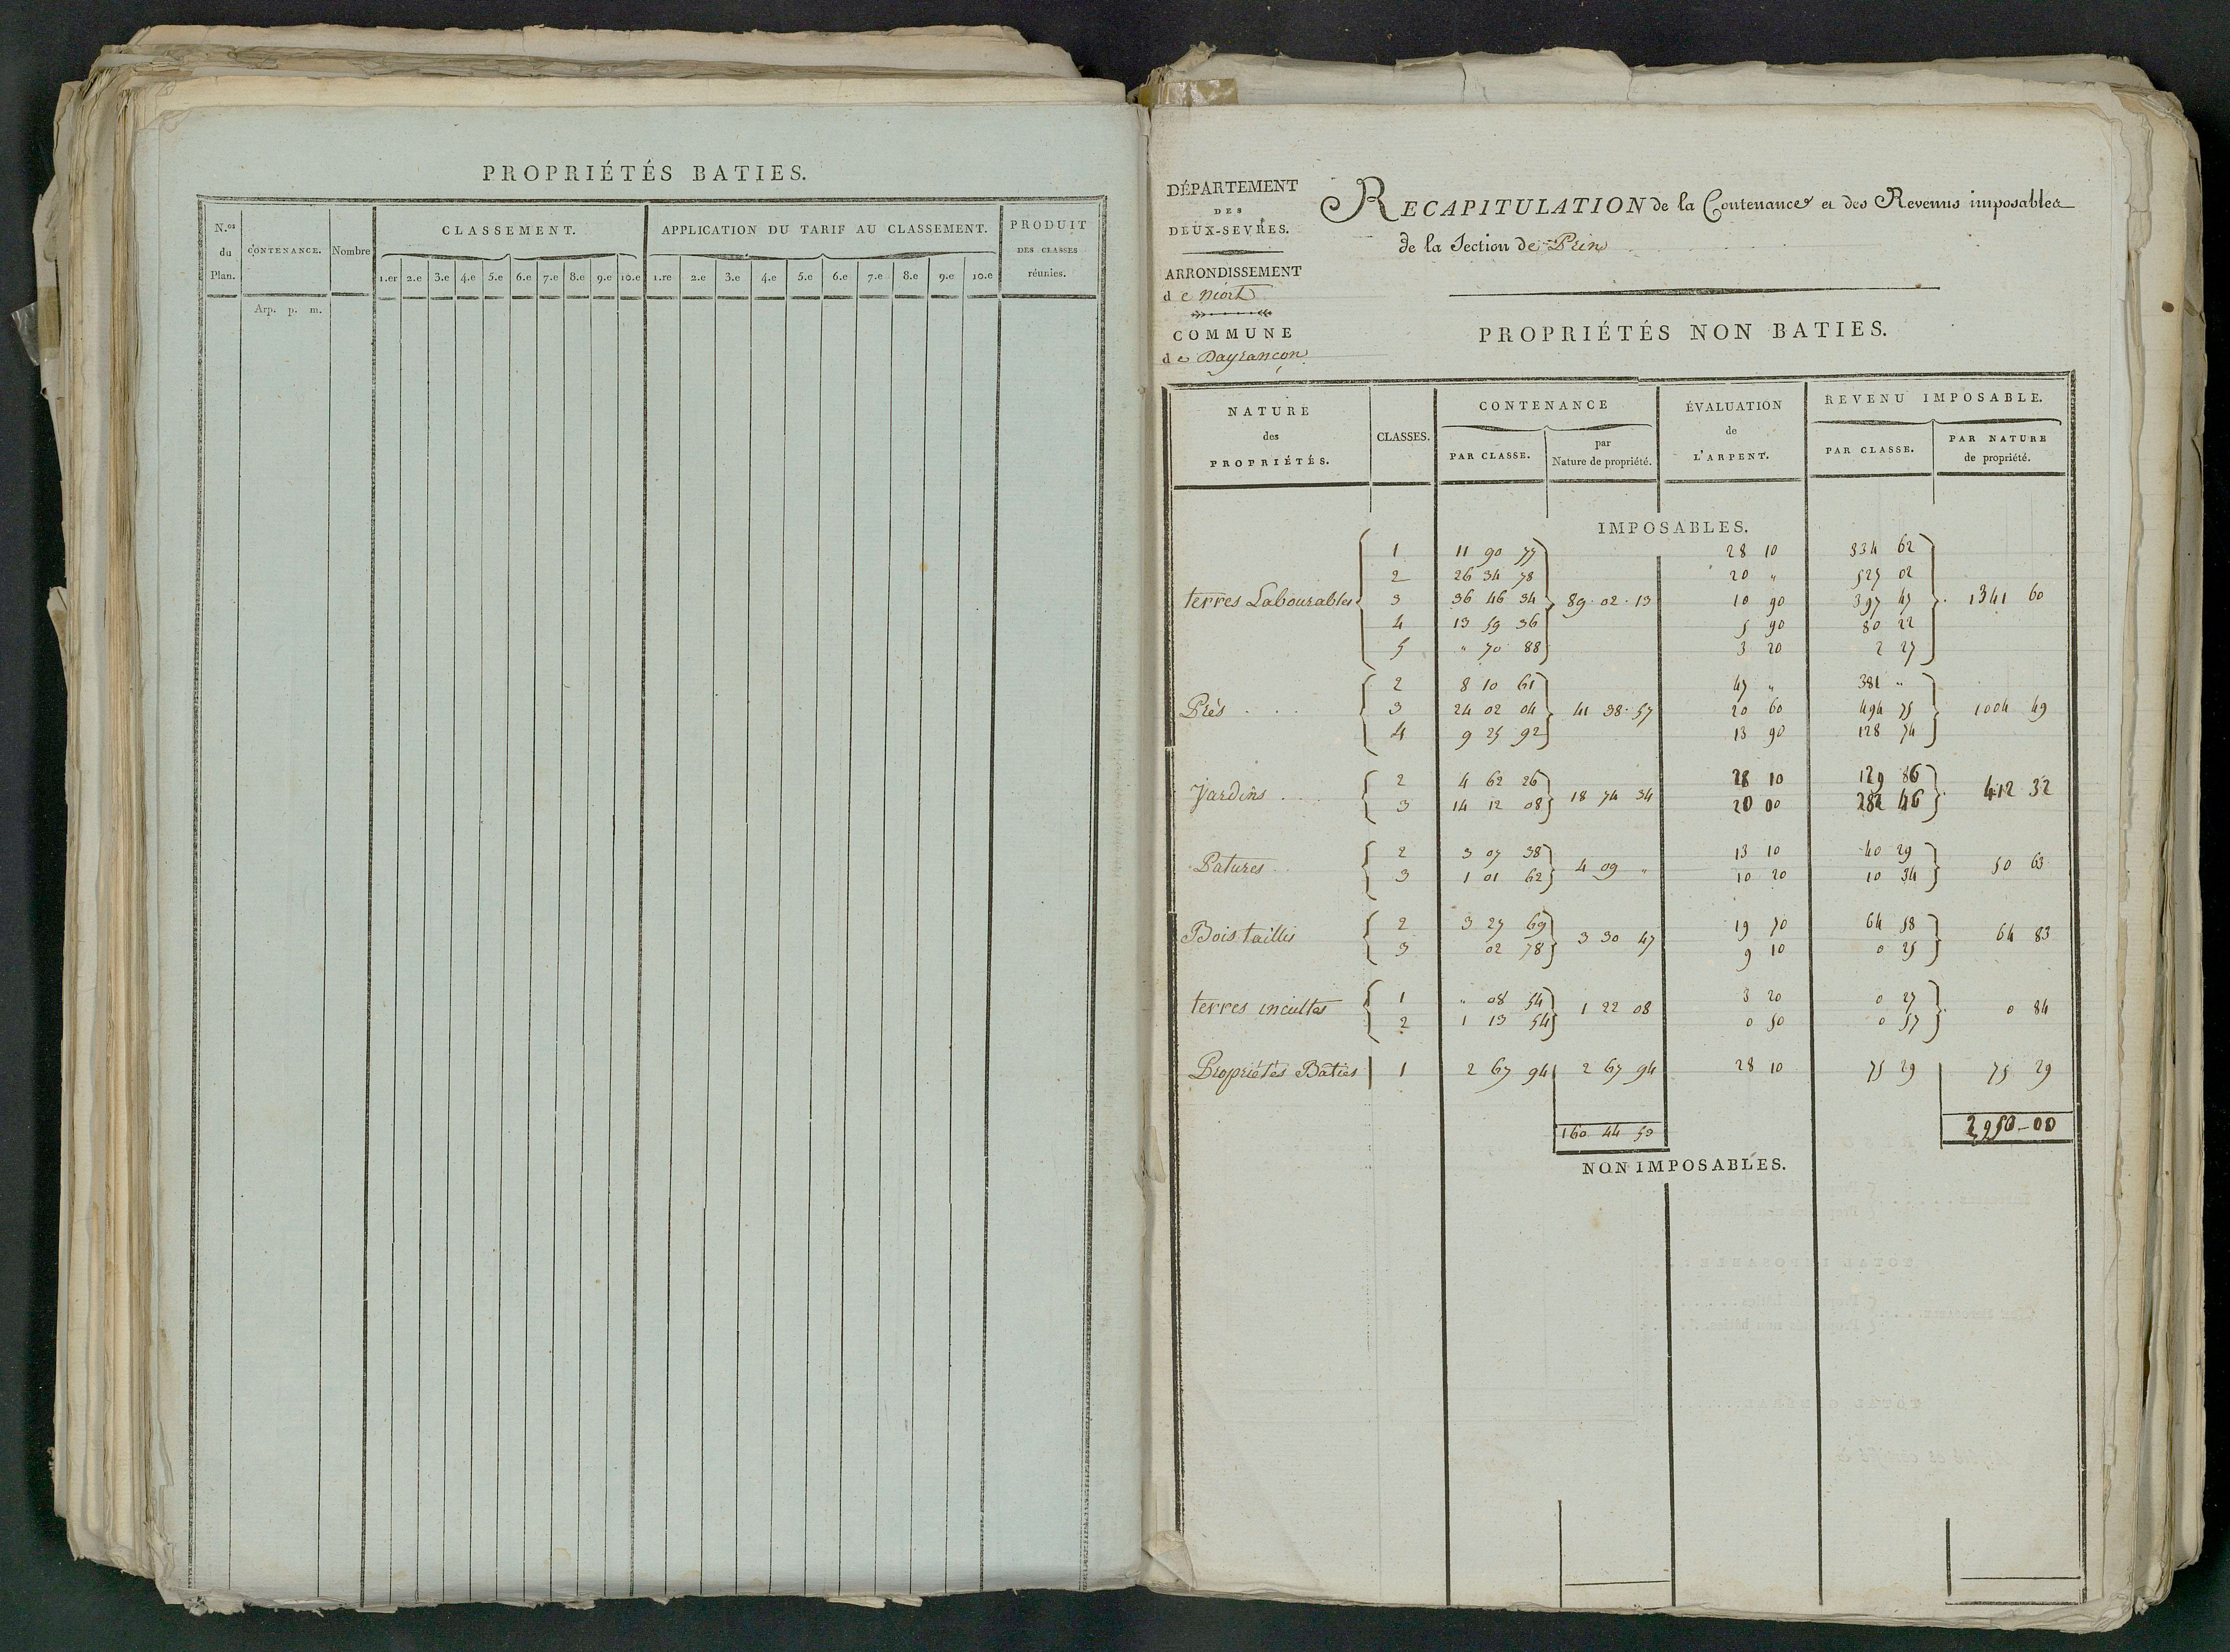 PROPRIÉTÉS BATIES.
N.os du Plan. CONTENANCE. Nombre CLASSEMENT. APPLICATION DU TARIF AU CLASSEMENT. PRODUIT DES CLASSES réunies.
1.er 2.e 3.e 4.e 5.e 6.e 7.e 8.e 9.e 10.e 1.re 2.e 3.e 4.e 5.e 6.e 7.e 8.e 9.e 10.e
Arp. p. m.
DÉPARTEMENT
DES
DEUX-SEVRES.
ARRONDISSEMENT
de Niort
COMMUNE
de Dayrançon
RECAPITULATION de la Contenance et des Revenus imposables
de la Section de Prin
PROPRIÉTÉS NON BATIES.
NATURE des PROPRIÉTÉS. CLASSES. CONTENANCE ÉVALUATION de L'ARPENT. REVENU IMPOSABLE.
PAR CLASSE. par Nature de propriété. PAR CLASSE. PAR NATURE de propriété.
IMPOSABLES.
1 11 90 77 28 10 334 62
2 26 34 78 20 " 527 02
terres Labourables 3 36 46 34 89 02 13 10 90 397 47 1341 60
4 13 59 36 5 90 80 22
5 " 70 88 3 20 2 27
2 8 10 61 47 " 381 "
Prés 3 24 02 04 41 38 57 20 60 494 75 1004 49
4 9 25 92 13 90 128 74
2 4 62 26 28 10 129 86
Jardins 18 74 34 412 32
3 14 12 08 20 00 282 46
2 3 07 38 13 10 40 29
Patures 4 09 " 50 63
3 1 01 62 10 20 10 34
2 3 27 69 19 70 64 58
Bois taillis 3 30 47 64 83
3 02 78 9 10 0 25
1 " 08 54 3 20 0 27
terres incultes 1 22 08 0 84
2 1 13 54 0 50 0 57
Propriétés Baties 1 2 67 94 2 67 94 28 10 75 29 75 29
160 44 50 2950-00
NON IMPOSABLES.